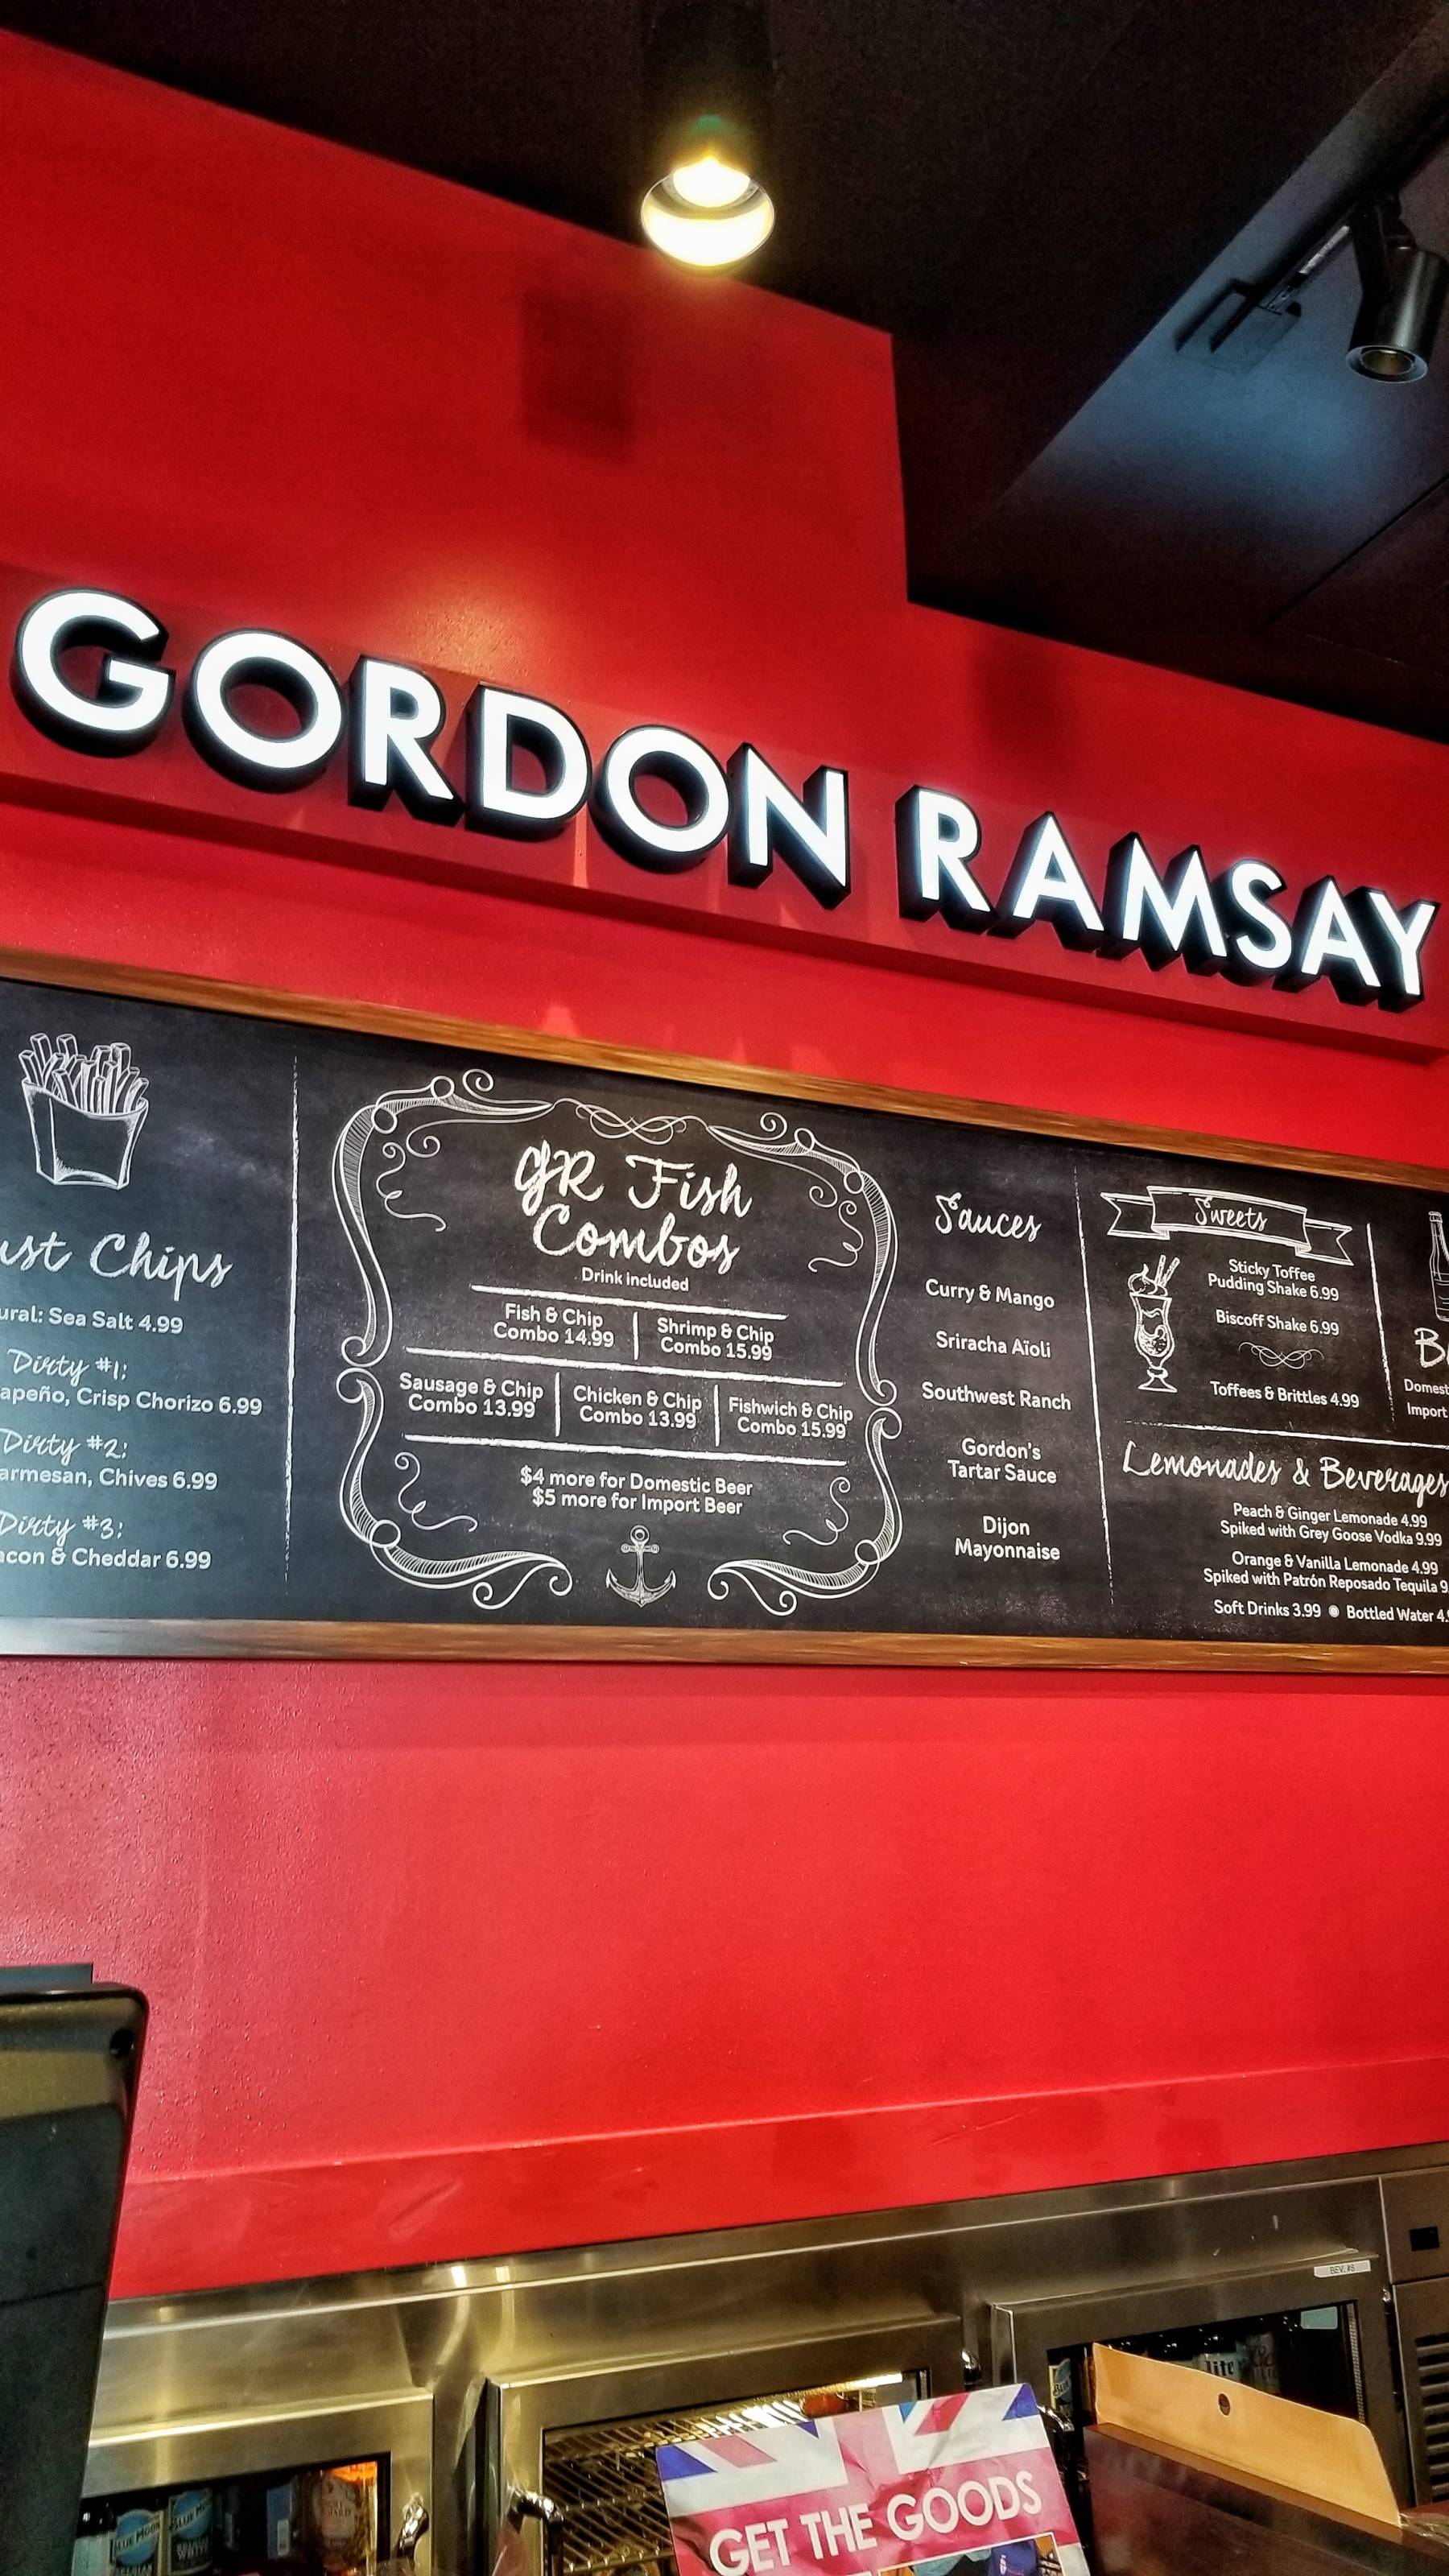 GORDON RAMSAY
Chips
Sea Salt 4.99
Dirty #1:
Crisp Chorizo 6.99
Dirty #2:
Chives 6.99
Dirty #3:
& Cheddar 6.99
GR Fish
Combos
Drink included
Fish & Chip
Combo 14.99
Shrimp & Chip
Combo 15.99
Sausage & Chip
Combo 13.99
Chicken & Chip
Combo 13.99
Fishwich & Chip
Combo 15.99
$4 more for Domestic Beer
$5 more for Import Beer
Sauces
Curry & Mango
Sriracha Aïoli
Southwest Ranch
Gordon's
Tartar Sauce
Dijon
Mayonnaise
Sweets
Sticky Toffee
Pudding Shake 6.99
Biscoff Shake 6.99
Toffees & Brittles 4.99
Import
Lemonades & Beverages
Peach & Ginger Lemonade 4.99
Spiked with Grey Goose Vodka 9.99
Orange & Vanilla Lemonade 4.99
Spiked with Patrón Reposado Tequila
Soft Drinks 3.99 Bottled Water
BEV. #6
BLUE MOON
GET THE GOODS